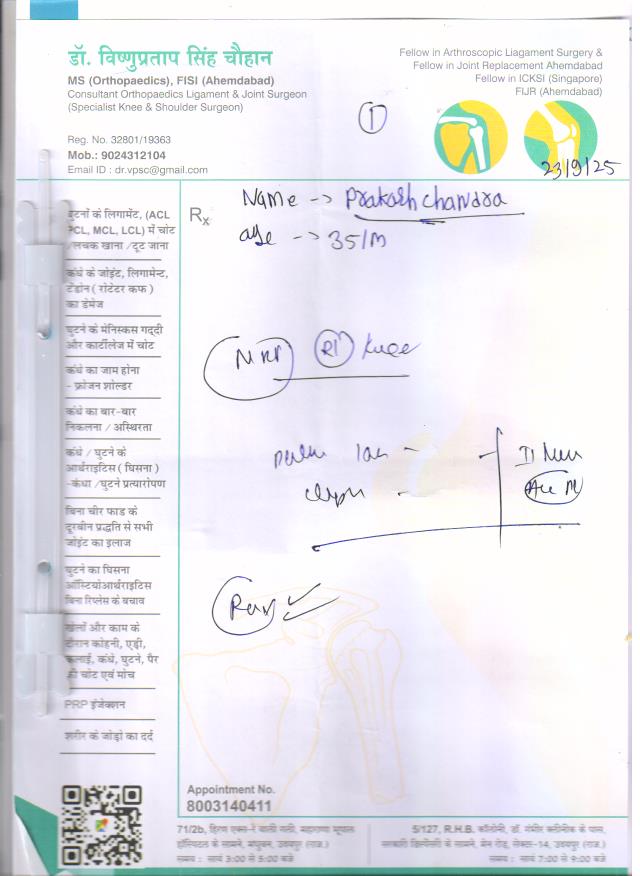 डॉ. विष्णुप्रताप सिंह चौहान
MS (Orthopaedics), FISI (Ahemdabad)
Consultant Orthopaedics Ligament & Joint Surgeon
(Specialist Knee & Shoulder Surgeon)
Reg. No. 32801/19363
Mob.: 9024312104
Email ID : dr.vpsc@gmail.com
Fellow in Arthroscopic Liagament Surgery &
Fellow in Joint Replacement Ahemdabad
Fellow in ICKSI (Singapore)
FIJR (Ahemdabad)
1
23/9/25
घुटनों के लिगामेंट, (ACL
PCL, MCL, LCL) में चोट
/लचक खाना /टूट जाना
कंधे के जोइंट, लिगामेन्ट,
टेंडोन ( रोटेटर कफ )
का डेमेज
घुटने के मेनिस्कस गद्दी
और कार्टीलेज में चोट
कंधे का जाम होना
- फ्रोजन शोल्डर
कंधे का बार-बार
निकलना / अस्थिरता
कंधे / घुटने के
आर्थराइटिस ( घिसना )
-कंधा/घुटने प्रत्यारोपण
बिना चीर फाड के
दूरबीन प्रद्धति से सभी
जोइंट का इलाज
घुटने का घिसना
ऑस्टियोआर्थराइटिस
बिना रिप्लेस के बचाव
खेलों और काम के
दौरान कोहनी, एड़ी,
कलाई, कंधे, घुटने, पैर
की चोट एवं मोच
PRP इंजेक्शन
शरीर के जोड़ों का दर्द
Rx
Name -> Prakash chandra
age -> 35/M
MRI Rt Knee
Appointment No.
8003140411
71/2b, हिरण एक्स-रे वाली गली, महाराणा भूपाल
हॉस्पिटल के सामने, मधुबन, उदयपुर (राज.)
समय : सायं 3:00 से 5:00 बजे
5/127, R.H.B. कॉलोनी, डॉ. गंभीर क्लीनिक के पास,
सरकारी डिस्पेंसरी के सामने, मेन रोड, सेक्टर-14, उदयपुर (राज.)
समय : सायं 7:00 से 9:00 बजे